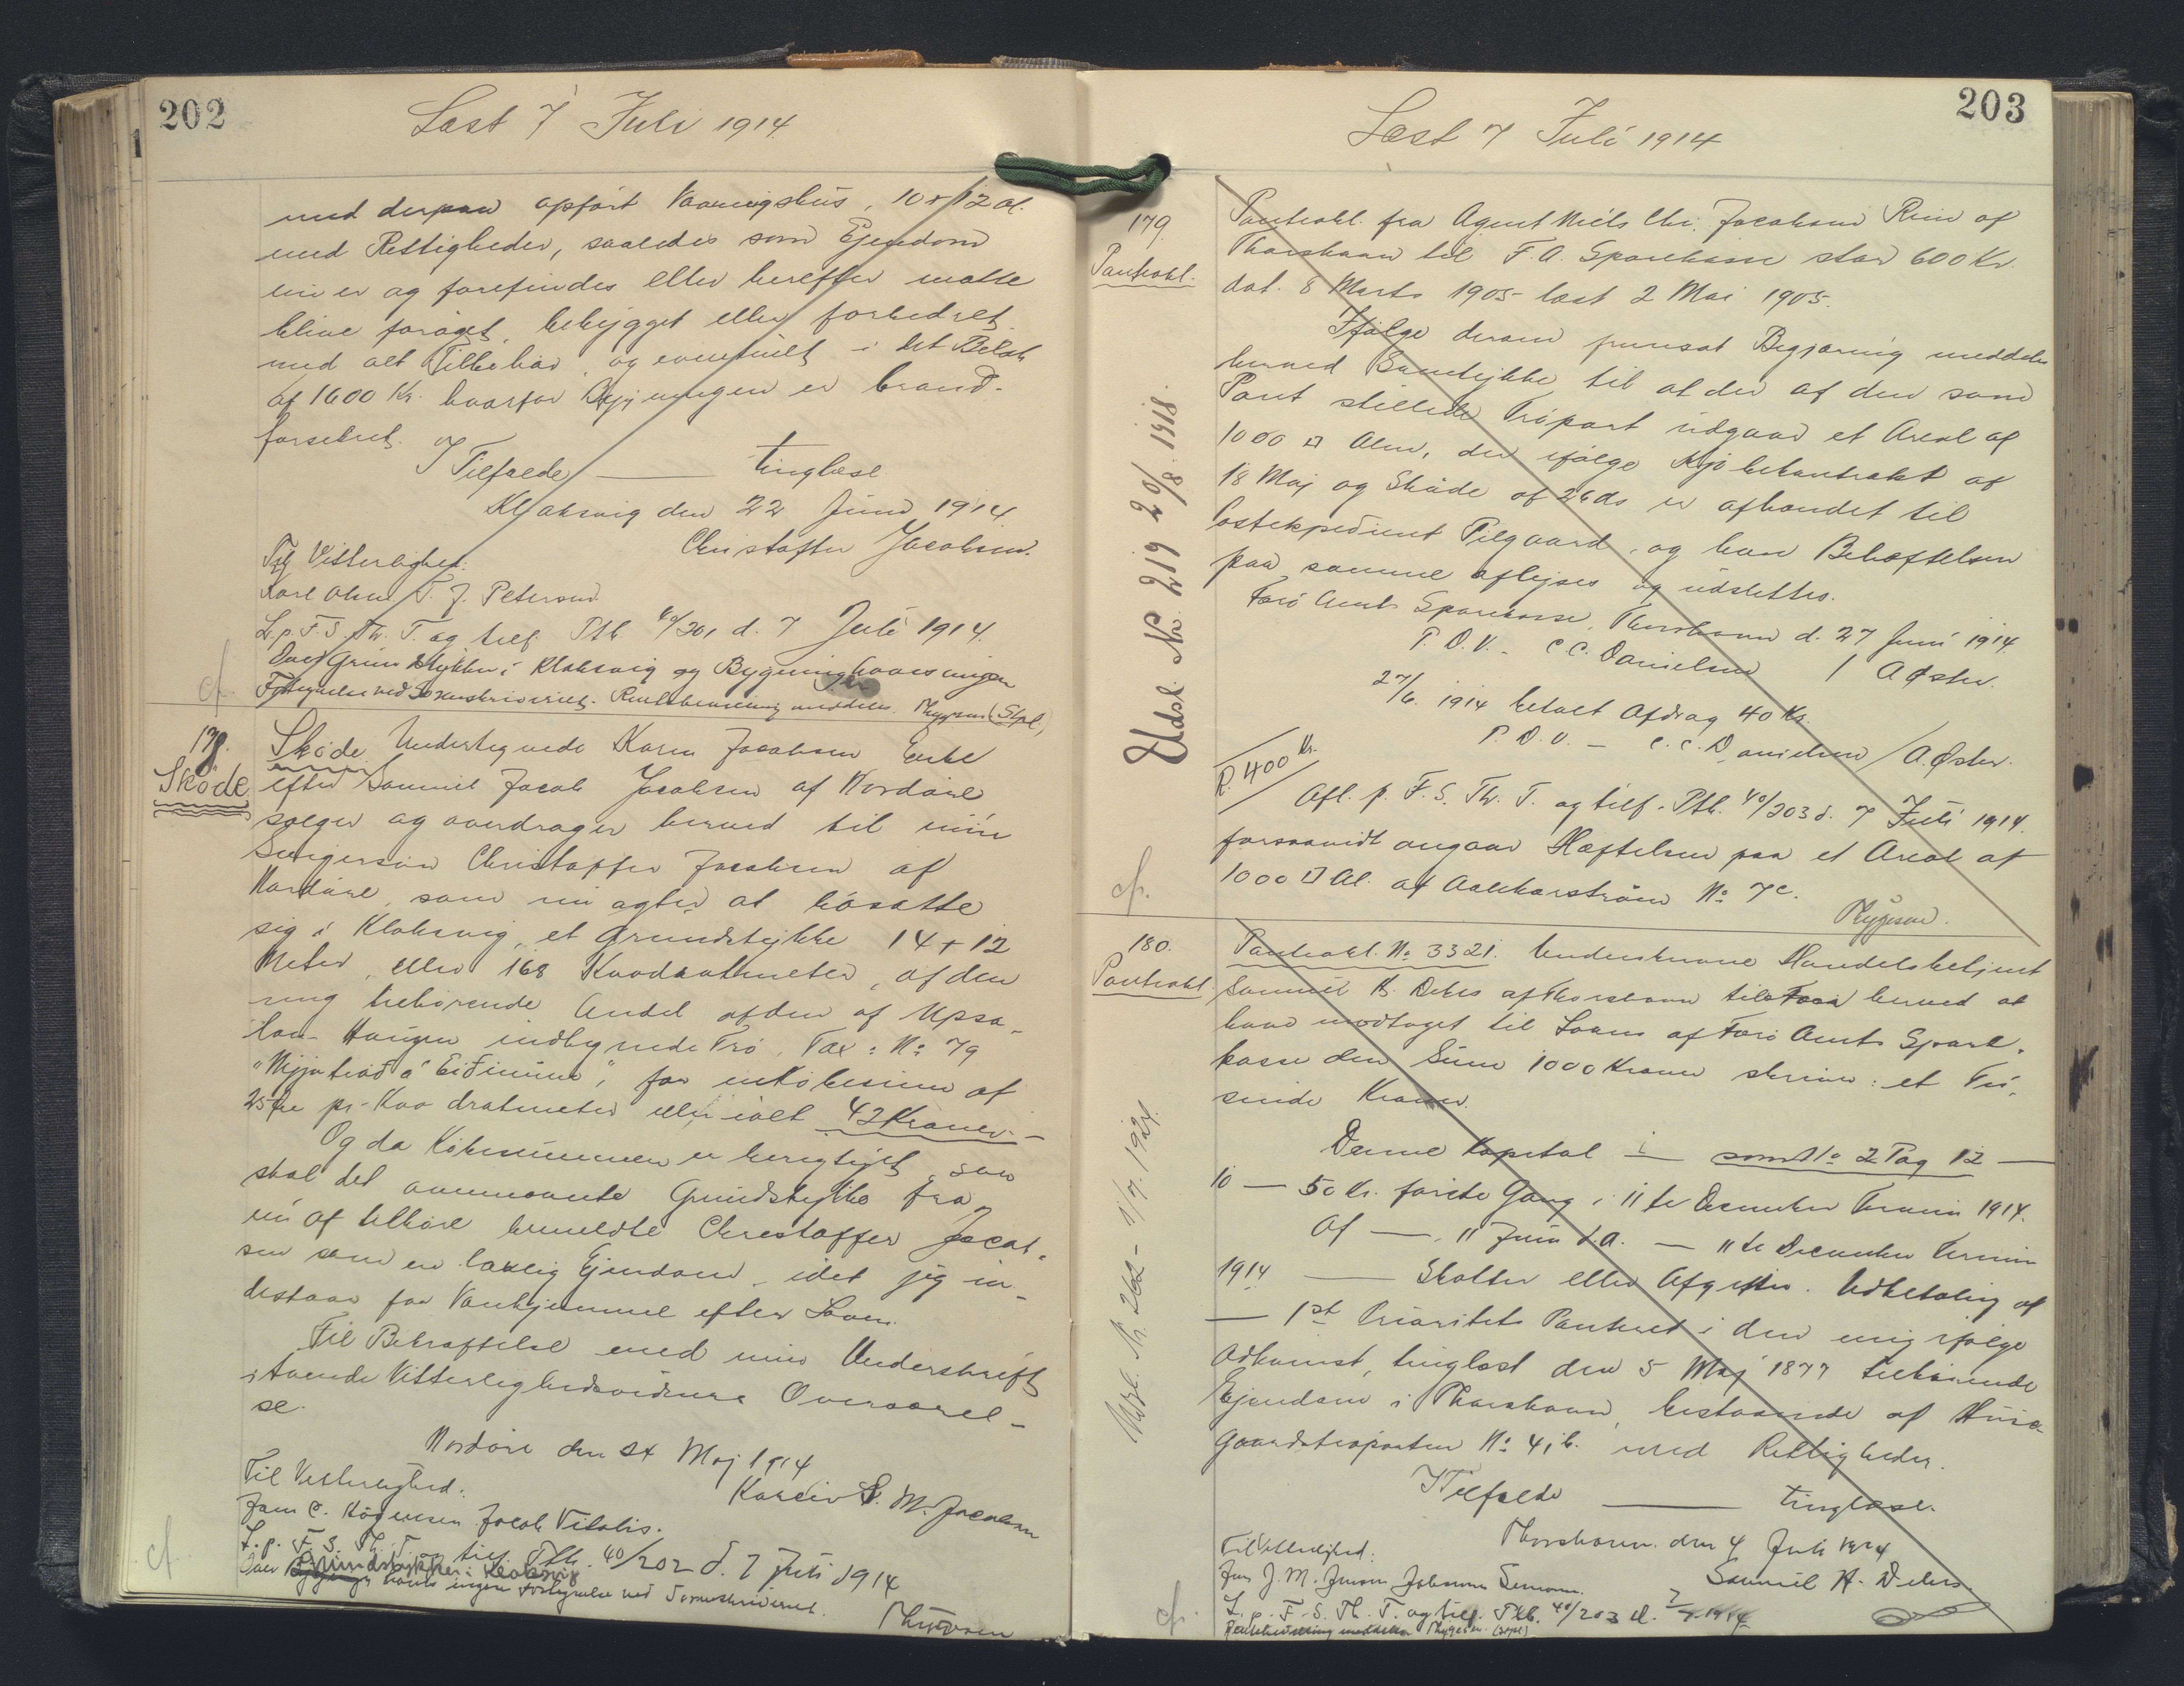 202
Læst 7 Juli 1914
med derpaa opført Vaaningshus, 10 x 12 al.
med Rettigheder, saaledes som Ejendom
nu er og forefindes eller herefter maatte
blive forøget, bebygget eller forbedret
med alt Tilbehør, og eventuelt i det Beløb
af 1600 Kr. hvorfor Bygningen er brand-
forsikret.
I Tilfælde — tinglæse
Klaksvig den 22 Juni 1914
Christoffer Jacobsen.
Til Vitterlighed:
Karl Olsen T. J. Petersen
L. p. F. S. Th. T. og tilf. Ptb. 40/201 d. 7 Juli 1914.
Over Grundstykker i Klaksvig og Bygning haves ingen
Fortegnelse ved Sorenskriveriet. Thygesen (Stpl.)
cf.
178.
Skøde
Skøde. Undertegnede Karen Jacobsen Enke
efter Samuel Jacob Jacobsen af Nordøre
sælger og overdrager herved til min
Svigersøn Christoffer Jacobsen af
Nordøre, som nu agter at bosætte
sig i Klaksvig, et Grundstykke 14 x 12
Meter, eller 168 Kvadratmeter, af den
mig tilhørende Andel af den af Upsa-
lar- Haugen indhegnede Trø, Tax: No 79
for en Købesum af
25 Øre pr. Kvadratmeter eller ialt 42 Kroner.—
Og da Købesummen er berigtiget, saa
skal det ommeldte Grundstykke fra
nu af tilhøre bemeldte Christoffer Jacob-
sen som en lovlig Ejendom, idet jeg in-
destaar for Vanhjemmel efter Loven.
Til Bekræftelse med min Underskrift
i tvende Vitterlighedsvidners Overværel-
se.
Nordøre den 24 Maj 1914
Karen S. M. Jacobsen
Til Vitterlighed:
Joen C. Høgnesen Jacob Vitalis.
L. p. F. S. Th. T. og tilf. Ptb. 40/202 d. 7 Juli 1914
Over Grundstykker i Klaksvig
haves ingen Fortegnelse ved Sorenskriveriet.
Thygesen
cf.
203
Læst 7 Juli 1914
179.
Pantobl.
Udsl. No. 219 20/8 1918.
Pantobl. fra Agent Niels Chr. Jacobsen Rein af
Thorshavn til F. A. Sparekasse stor 600 Kr.
dat. 8 Marts 1905 læst 2 Mai 1905.
Ifølge derom fremsat Begjæring meddeles
herved Samtykke til at der af den som
Pant stillede Trøpart udgaar et Areal af
1000 □ Alen, der ifølge Kjøbekontrakt af
18 Maj og Skøde af 26 ds er afhændet til
Postekspedient Pilgaard, og kan Behæftelsen
paa samme aflyses og udslettes.
Færø Amts Sparekasse, Thorshavn d. 27 Juni 1914.
P. D. V. – C. C. Danielsen / A Øster.
27/6. 1914 betalt Afdrag 40 Kr.
P. D. V. – C. C. Danielsen / A. Øster.
R. 400 Kr.
Afl. p. F. S. Th. T. og tilf. Ptb. 40/203 d. 7 Juli 1914.
forsaavidt angaar Hæftelsen paa et Areal af
1000 □ Al. af Aalekærstrøen No 7c.
Thygesen.
cf.
180.
Pantobl.
Udsl. Nr. 262 - 1/7. 1924.
Pantobl. No 3321. Underskrevne Handelsbetjent
Samuel H. Debes af Thorshavn tilstaar herved at
have modtaget til Laans af Færø Amts Spare-
kasse den Sum 1000 Kroner skriver: et Tu-
sinde Kroner.
Denne Kapital — som No 2 Pag 12 —
10 — 50 Kr. første Gang i 11te December Termin 1914.
Af —, 11 Juni d.A. — 11te December Termin
1914 — Skatter eller Afgifter. Udbetaling af
— 1st Prioritets Panteret i den mig ifølge
Adkomst, tinglæst den 5 Maj 1877 tilhørende
Ejendom i Thorshavn, bestaaende af Husa
gaardstroparten No 41b. med Rettigheder.
I Tilfælde — tinglæse.
Thorshavn. den 4 Juli 1914
Samuel H. Debes.
Til Vitterlighed:
L. p. F. S. Th. T. og tilf. Ptb. 40/203 d. 7/7 1914
Thygesen. (Stpl)
cf.